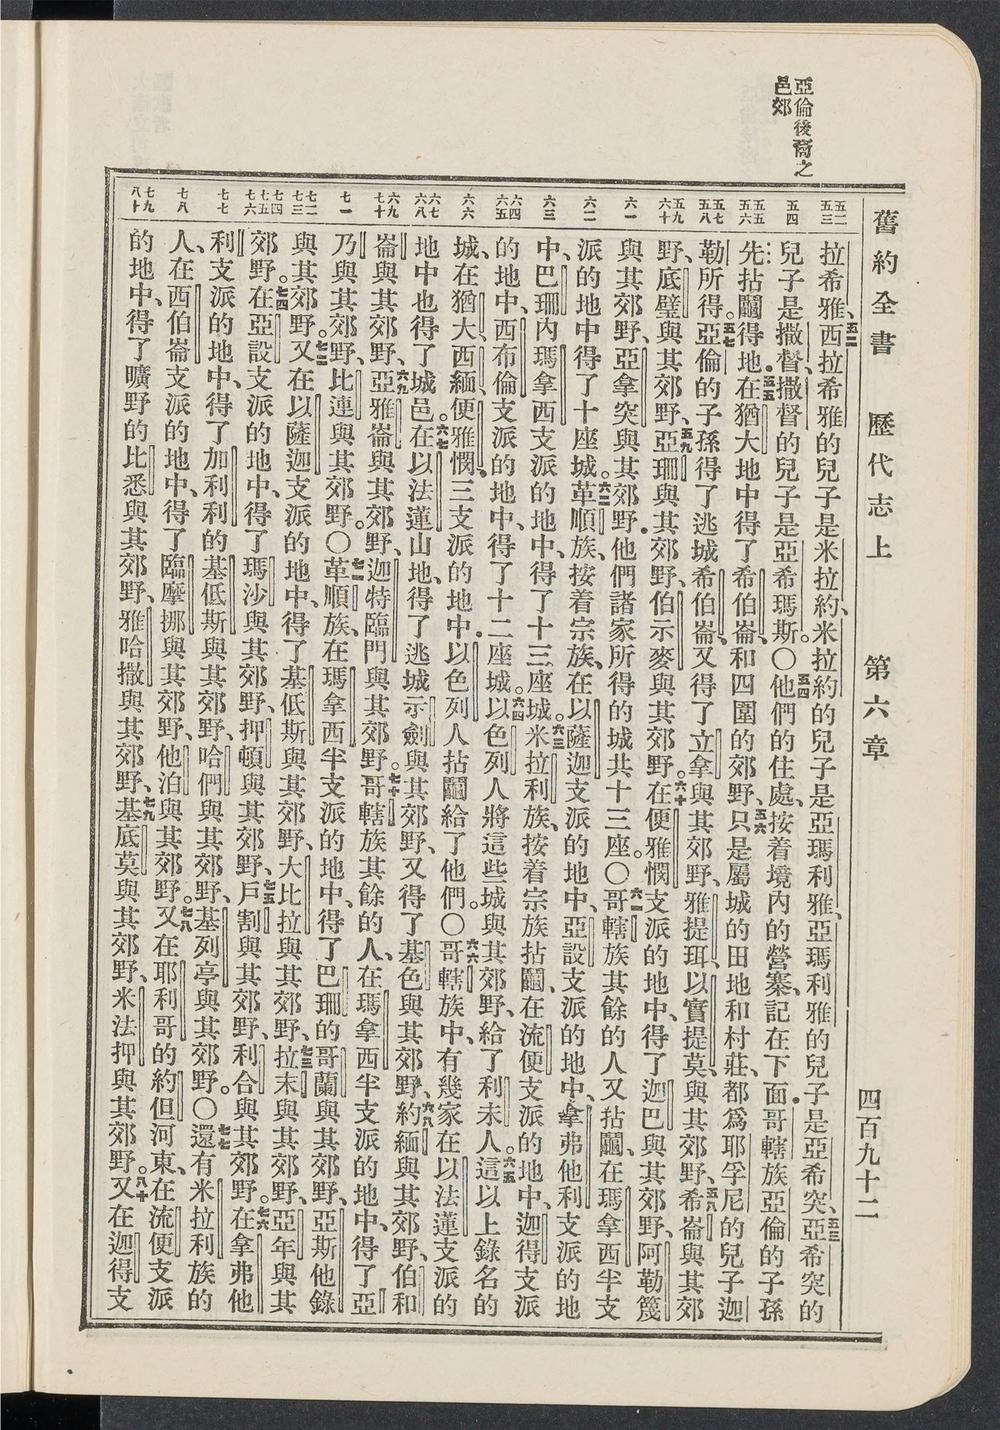 亞倫後裔之
邑郊
舊約全書　歷代志上　第六章　四百九十二
五二
五三
拉希雅、五二西拉希雅的兒子是米拉約、米拉約的兒子是亞瑪利雅、亞瑪利雅的兒子是亞希突、五三亞希突的
五四
兒子是撒督、撒督的兒子是亞希瑪斯。〇五四他們的住處、按着境內的營寨、記在下面、哥轄族亞倫的子孫
五五
五六
先拈鬮得地、五五在猶大地中得了希伯崙、和四圍的郊野、五六只是屬城的田地和村莊、都爲耶孚尼的兒子迦
五七
五八
勒所得。五七亞倫的子孫得了逃城希伯崙、又得了立拿與其郊野、雅提珥、以實提莫與其郊野、五八希崙與其郊
五九
六十
野、底璧與其郊野、五九亞珊與其郊野、伯示麥與其郊野。六十在便雅憫支派的地中、得了迦巴與其郊野、阿勒篾
六一
與其郊野、亞拿突與其郊野、他們諸家所得的城共十三座。〇六一哥轄族其餘的人又拈鬮、在瑪拿西半支
六二
派的地中得了十座城。六二革順族、按着宗族、在以薩迦支派的地中、亞設支派的地中、拿弗他利支派的地
六三
中、巴珊內瑪拿西支派的地中、得了十三座城。六三米拉利族、按着宗族拈鬮、在流便支派的地中、迦得支派
六四
六五
的地中、西布倫支派的地中、得了十二座城。六四以色列人將這些城與其郊野、給了利未人。六五這以上錄名的
六六
城、在猶大、西緬、便雅憫、三支派的地中、以色列人拈鬮給了他們。〇六六哥轄族中、有幾家在以法蓮支派的
六七
六八
地中也得了城邑。六七在以法蓮山地、得了逃城示劍與其郊野、又得了基色與其郊野、六八約緬與其郊野、伯和
六九
七十
崙與其郊野、六九亞雅崙與其郊野、迦特臨門與其郊野。七十哥轄族其餘的人、在瑪拿西半支派的地中、得了亞
七一
乃與其郊野、比連與其郊野。〇七一革順族、在瑪拿西半支派的地中、得了巴珊的哥蘭與其郊野、亞斯他錄
七二
七三
與其郊野。七二又在以薩迦支派的地中、得了基低斯與其郊野、大比拉與其郊野、七三拉末與其郊野、亞年與其
七四
七五
七六
郊野。七四在亞設支派的地中、得了瑪沙與其郊野、押頓與其郊野、七五戶割與其郊野、利合與其郊野。七六在拿弗他
七七
利支派的地中、得了加利利的基低斯與其郊野、哈們與其郊野、基列亭與其郊野。〇七七還有米拉利族的
七八
人、在西伯崙支派的地中、得了臨摩挪與其郊野、他泊與其郊野。七八又在耶利哥的約但河東、在流便支派
七九
八十
的地中、得了曠野的比悉與其郊野、雅哈撒與其郊野、七九基底莫與其郊野、米法押與其郊野。八十又在迦得支